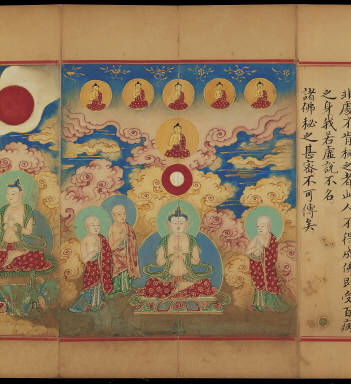 非處不肯秘之者此人不得成佛即受百病
之身我若虛說不名
諸佛秘之甚審不可傳矣